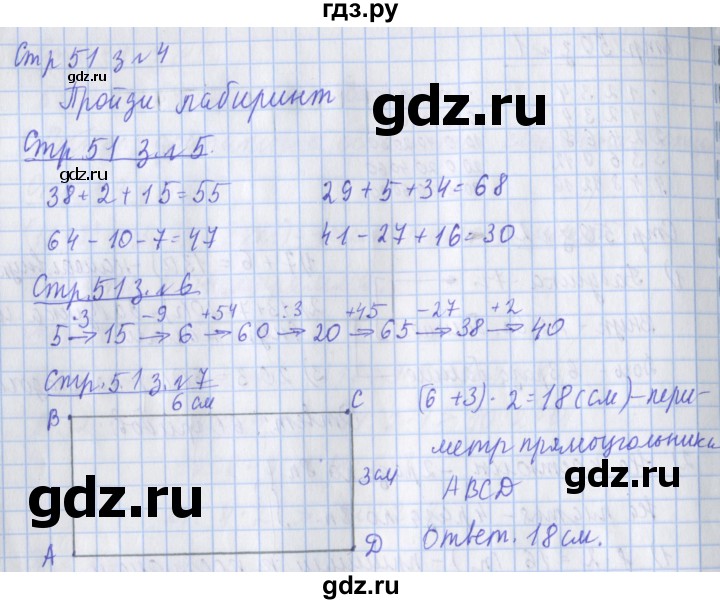 гдз.ру
Стр 51 з №4
gdz.ru
Пройди лабиринт
gdz.ru
Стр 51 з. №5.
gdz.ru
38+2+15=55 29+5+34=68
64-10-7=47 41-27+16=30
Стр. 51 з. №6
·3 -9 +54 :3 +45 -27 +2
5 → 15 → 6 → 60 → 20 → 65 → 38 → 40
Стр. 51 з. №7
6 см
B C (6+3)·2=18(см)-пери-
метр прямоугольника
gdz.ru gdz.ru
3см ABCD
A D Ответ. 18 см.
gdz.ru
gdz.ru